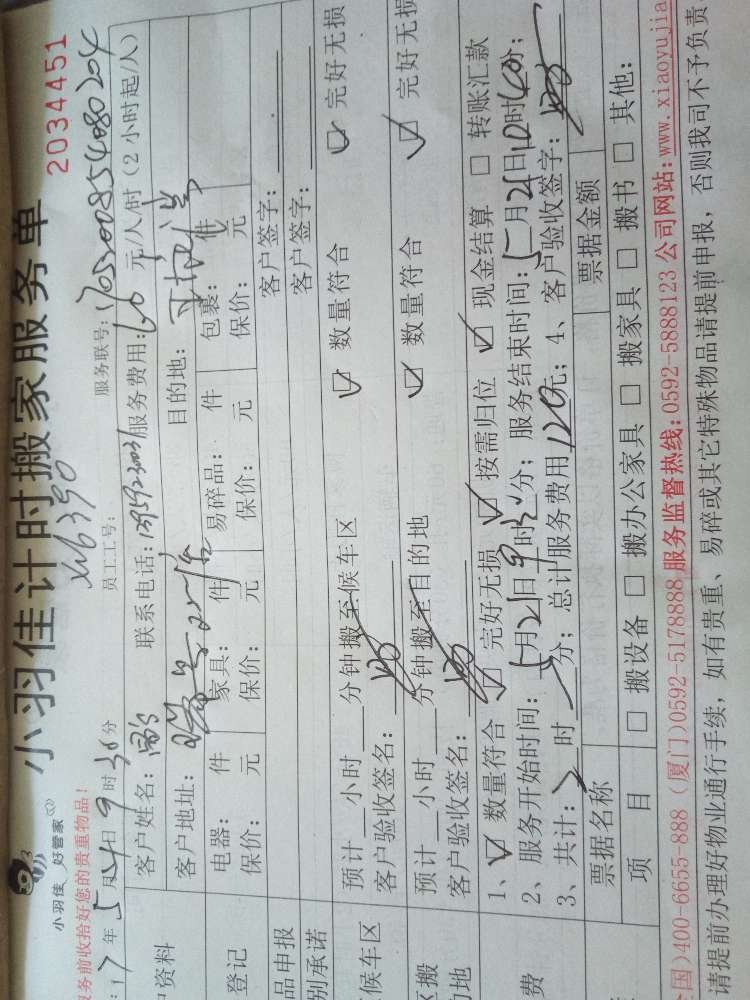 小羽佳计时搬家服务单
2034451
小羽佳 好管家
务前收拾好您的贵重物品!
员工工号: XY6390
服务联号:
17年5月21日9时30分
客户姓名: 联系电话: 服务费用:60元/人/时(2小时起/人)
户资料
客户地址: 目的地:
登记
电器: 件 家具: 件 易碎品: 件 包裹: 件
保价: 元 保价: 元 保价: 元 保价: 元
品申报 客户签字:
别承诺 客户签字:
候车区
预计 小时 分钟搬至候车区 ☑ 数量符合 ☑ 完好无损
客户验收签名:
区搬
的地
预计 小时 分钟搬至目的地 ☑ 数量符合 ☑ 完好无损
客户验收签名:
费
1、☑ 数量符合 ☑ 完好无损 ☑ 按需归位 ☑ 现金结算 □ 转账汇款
2、服务开始时间:5月21日9时30分; 服务结束时间:5月21日10时40分;
3、共计:2时 分; 总计服务费用120元; 4、客户验收签字:
票据名称 票据金额
项 目 □ 搬设备 □ 搬办公家具 □ 搬家具 □ 搬书 □ 其他:
国)400-6655-888 (厦门)0592-5178888 服务监督热线:0592-5888123 公司网站:www.xiaoyujia
请提前办理好物业通行手续,如有贵重、易碎或其它特殊物品请提前申报,否则我司不予负责